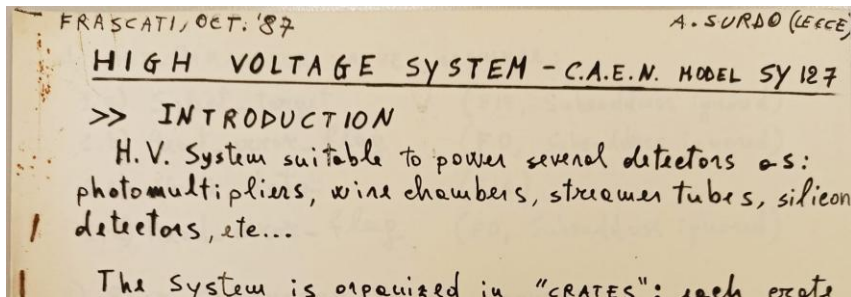 FRASCATI, OCT. '87 A. SURDO (LECCE)
HIGH VOLTAGE SYSTEM - C.A.E.N. MODEL SY 127
>> INTRODUCTION
H.V. System suitable to power several detectors as:
photomultipliers, wire chambers, streamer tubes, silicon
detectors, etc...
The System is organized in "CRATES": each crate